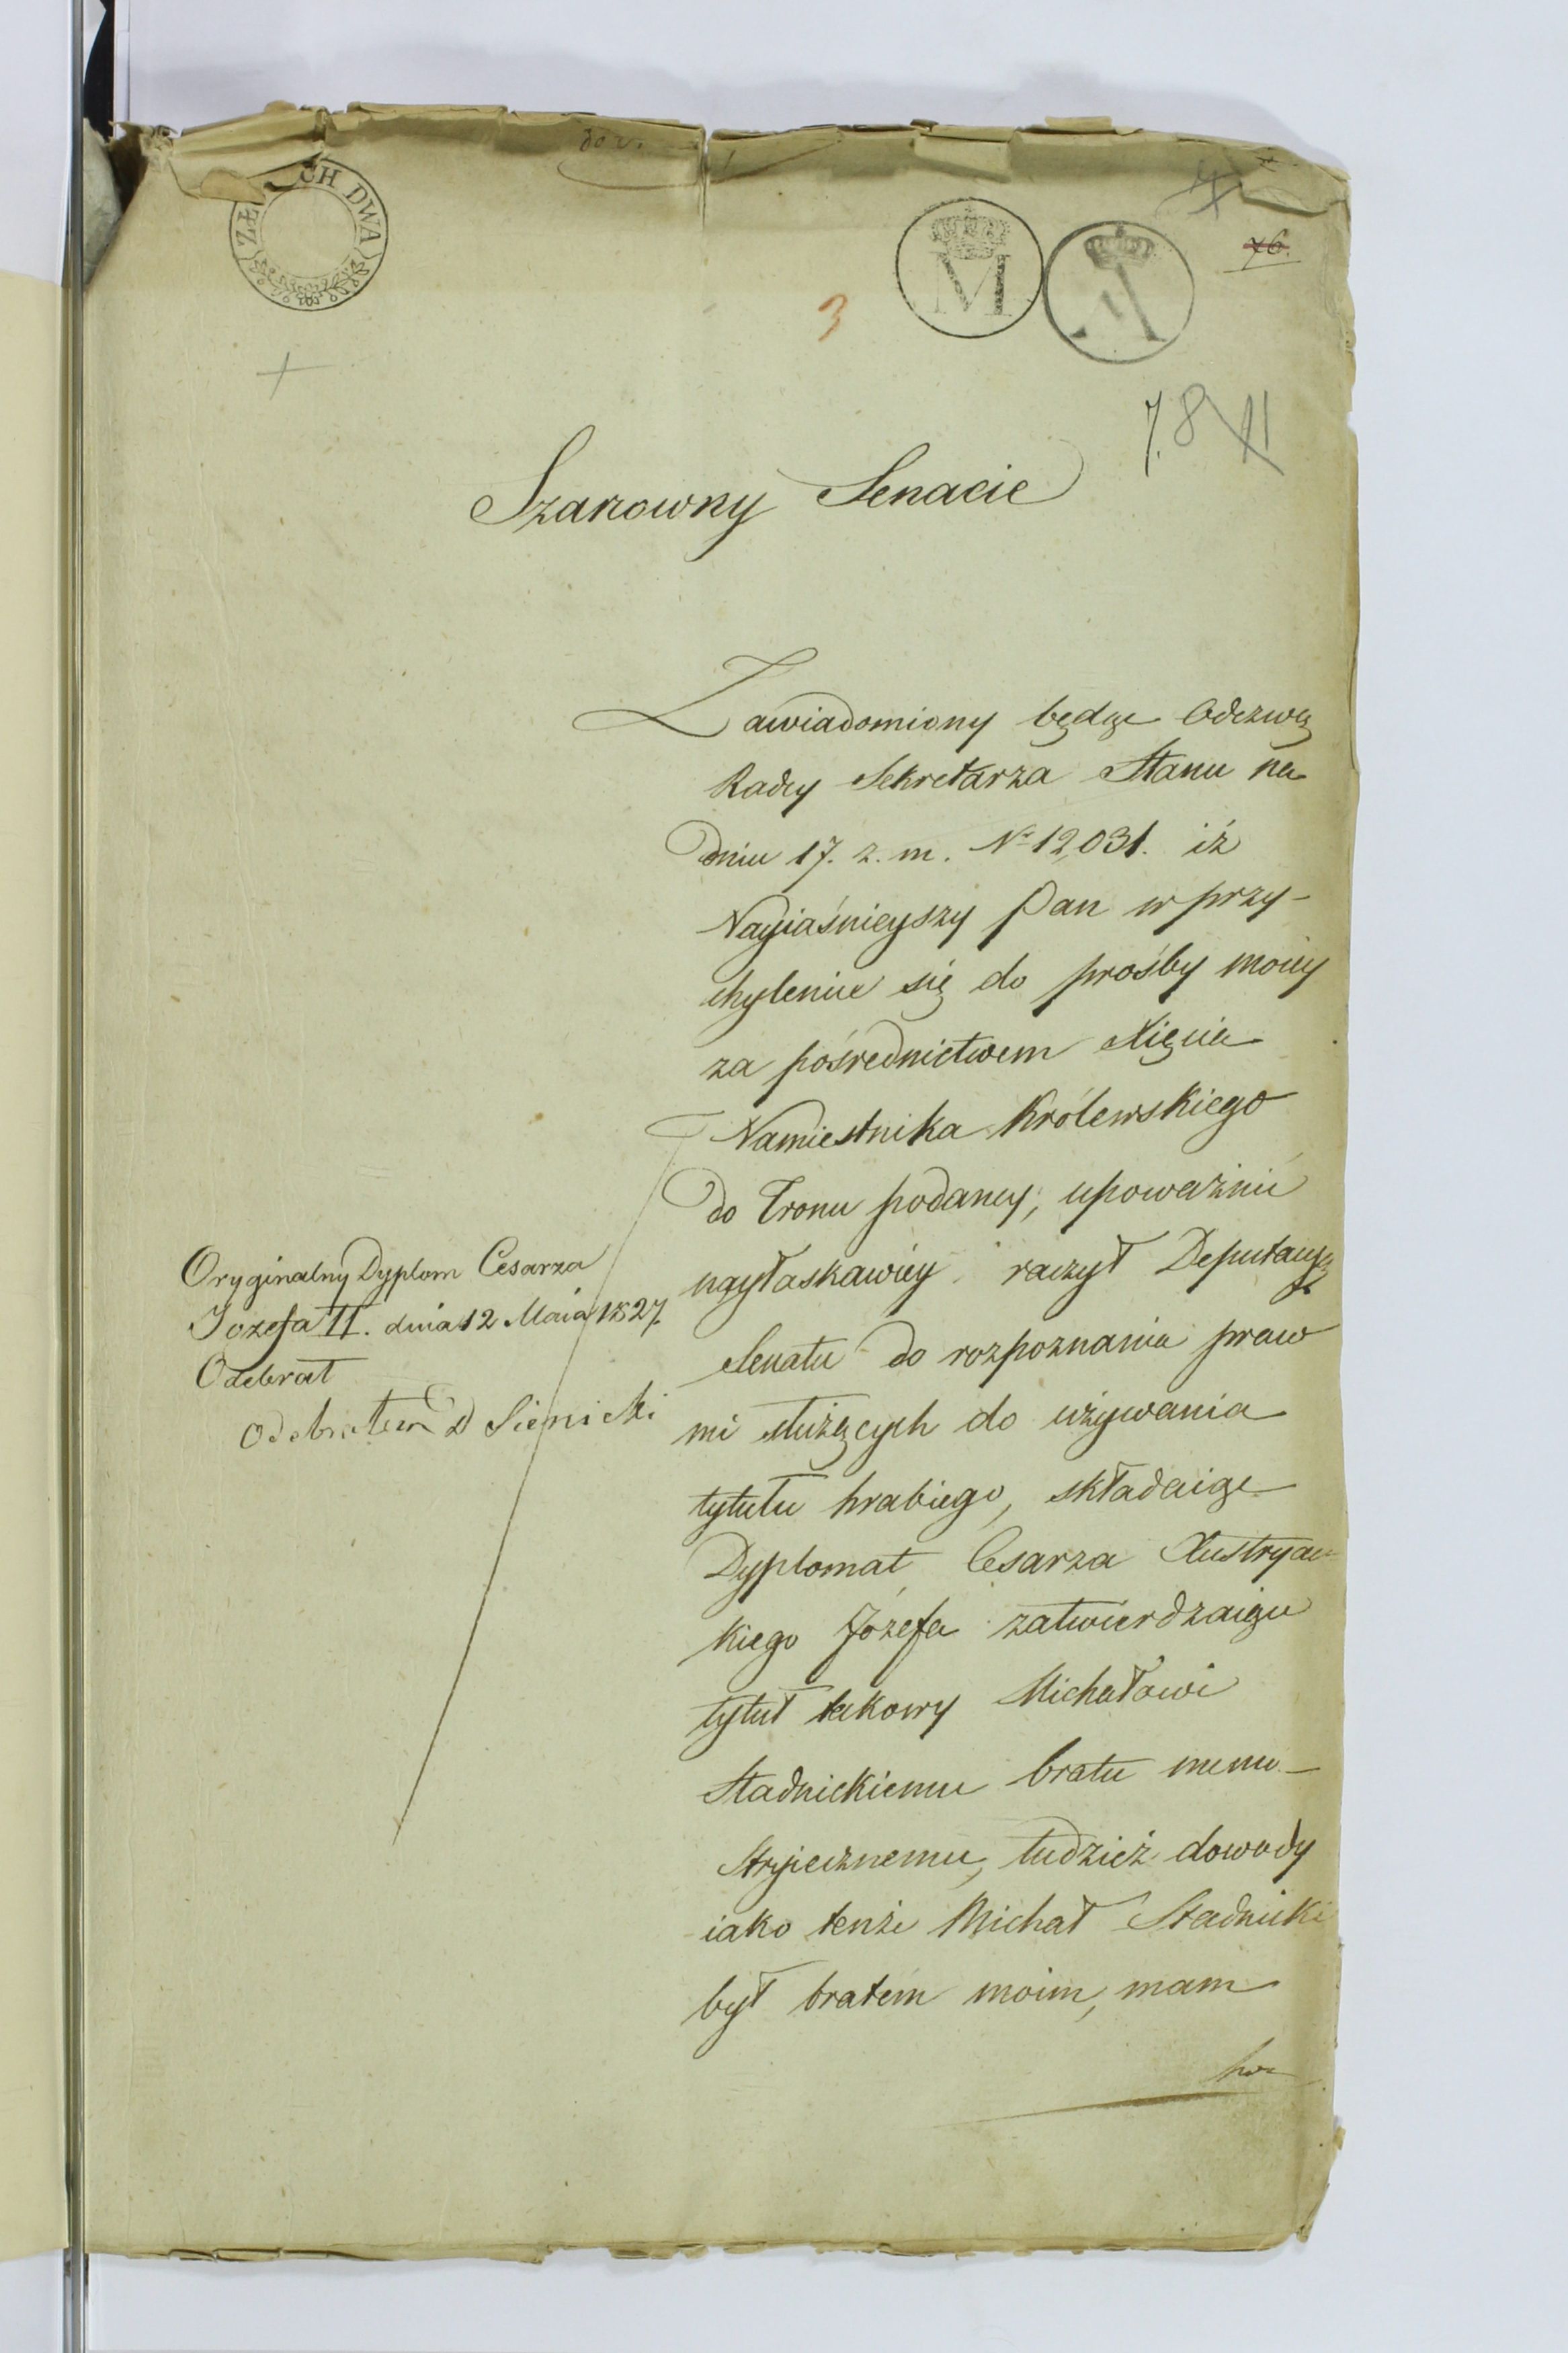 ZŁ CH DWA
M
A
76.
3
7.8
11
Szanowny Senacie
Zawiadomiony będąc Odezwą
Rady Sekretarza Stanu na
dniu 17. z. m. No 12,031. iż
Nayiaśnieyszy Pan w przy-
chylenie się do prośby moiey
za pośrednictwem Xięcia
Namiestnika Królewskiego
do Tronu podaney, upoważnić
nayłaskawiey raczył Deputacyą
Senatu do rozpoznania praw
mi służących do używania
tytułu hrabiego, składaiąc
Dyplomat Cesarza Austryac-
kiego Józefa zatwierdzaiący
tytuł takowy Michałowi
Stadnickiemu bratu memu
Stryiecznemu, tudzież dowody
iako tenże Michał Stadnicki
był bratem moim, mam
hon
Oryginalny Dyplom Cesarza
Jozefa II. dnia 12 Maia 1827.
Odebrał
Odebrałem D Sienicki